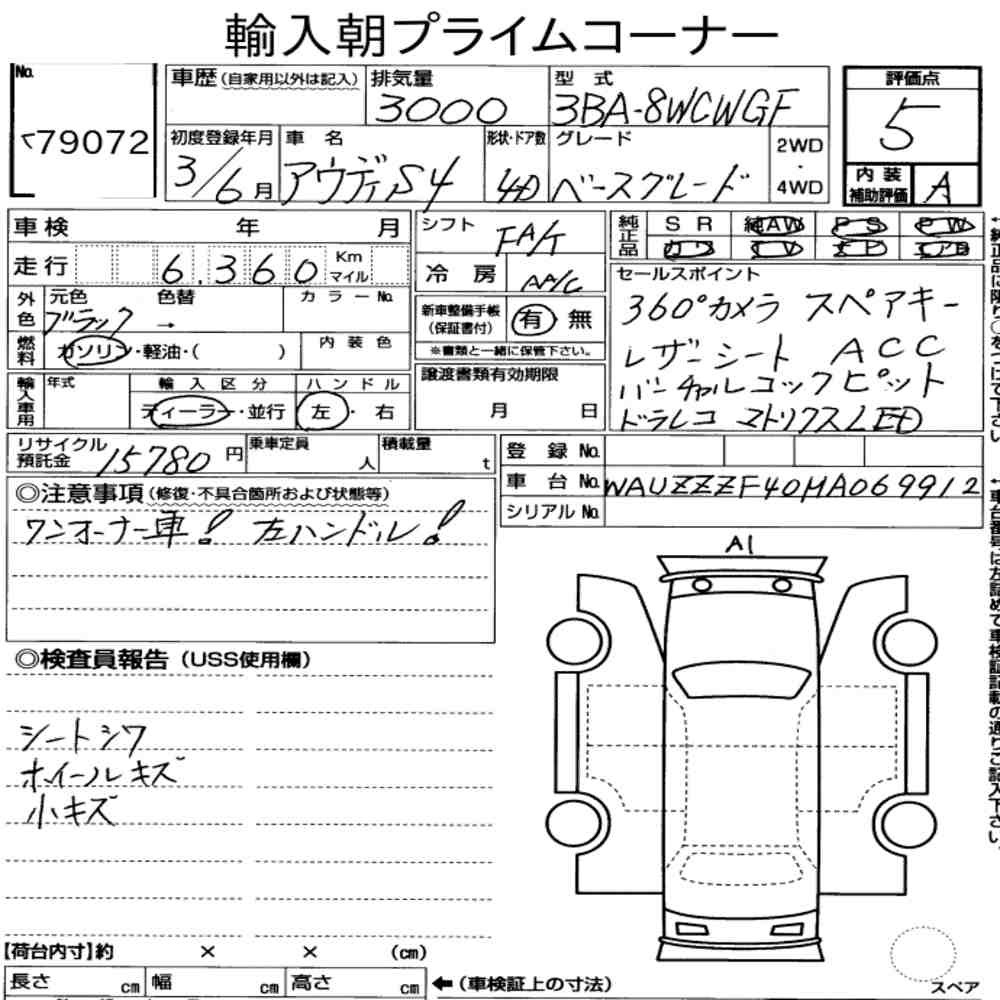 輸入朝プライムコーナー
No. 79072
車歴(自家用以外は記入) 排気量 3000 型式 3BA-8WCWGF 評価点 5
初度登録年月 3/6月 車名 アウディS4 形状・ドア数 4D グレード ベースグレード 2WD・4WD 内装補助評価 A
車検 年 月 シフト FA/T 純正品 SR 純AW PS PW
走行 6,360 Km マイル 冷房 AA/C カワ TV
外色 元色 ブラック 色替 → カラーNo. 新車整備手帳(保証書付) 有 無 セールスポイント
※書類と一緒に保管下さい。 360°カメラ スペアキー
燃料 ガソリン・軽油・( ) 内装色 譲渡書類有効期限 月 日 レザーシート ACC
輸入車用 年式 輸入区分 ディーラー・並行 ハンドル 左・右 バーチャルコックピット
ドラレコ マトリクスLED
リサイクル預託金 15780円 乗車定員 人 積載量 t 登録No.
車台No. WAUZZZF40MA069912
シリアルNo.
◎注意事項(修復・不具合箇所および状態等)
ワンオーナー車! 左ハンドル!
A1
◎検査員報告(USS使用欄)
シートシワ
ホイールキズ
小キズ
【荷台内寸】約 × × (cm)
長さ cm 幅 cm 高さ cm ←(車検証上の寸法)
スペア